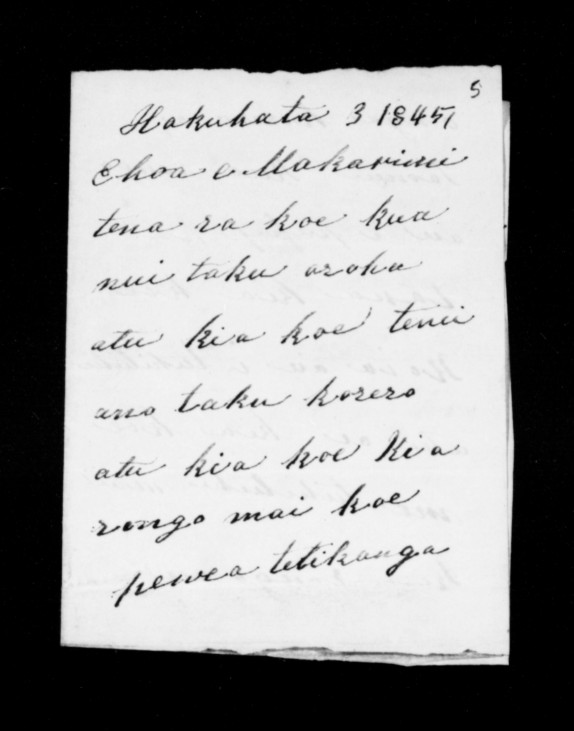 5
Hakuhata 3 1845
Ehoa e Makarini
tena ra koe kua
nui taku aroha
atu kia koe tenei
ano taku korero
atu kia koe Kia
rongo mai koe
pewea tetikanga